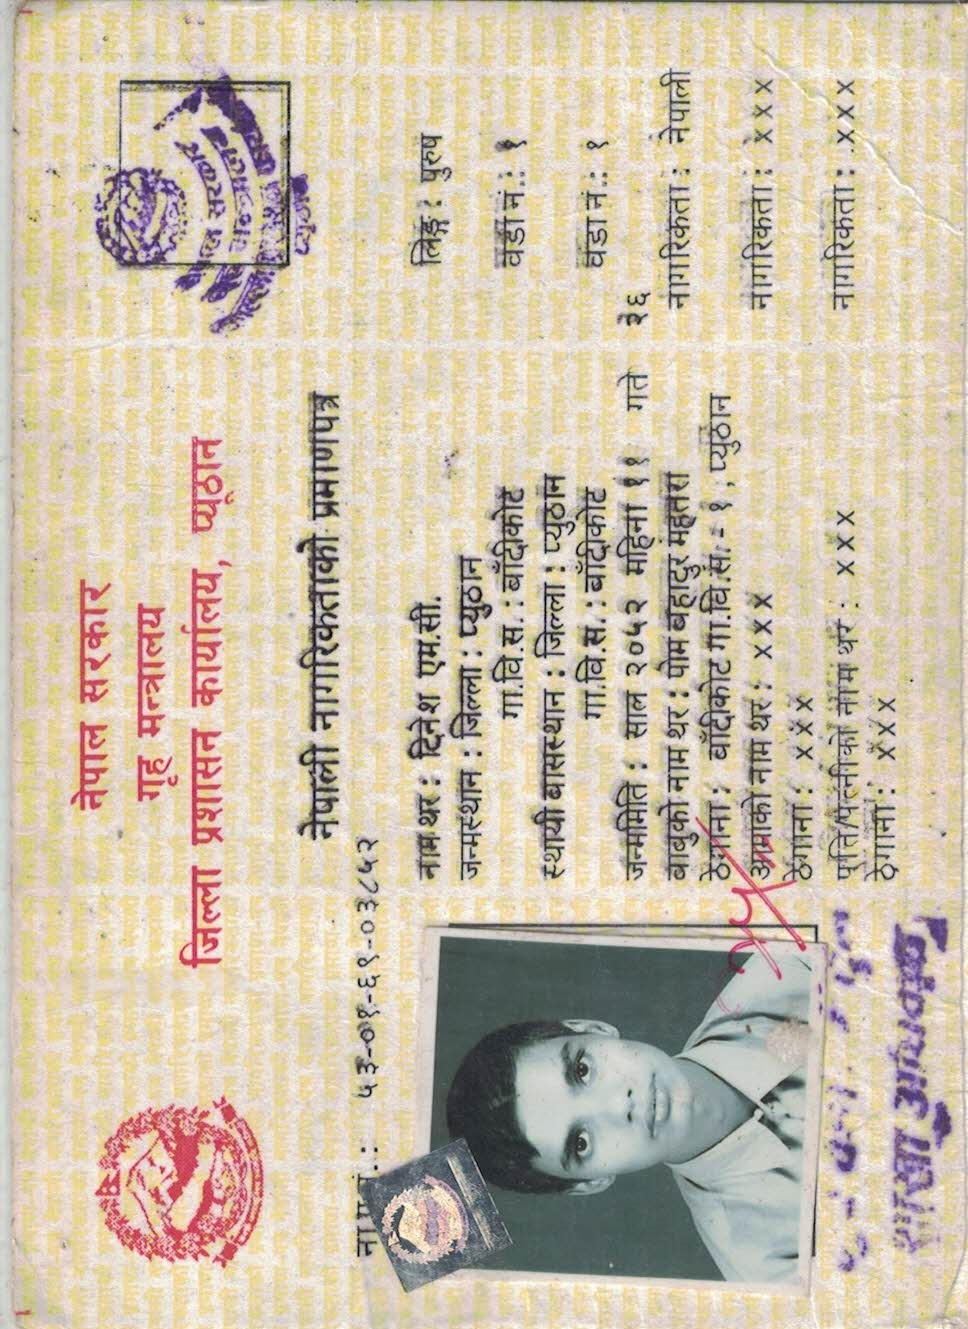 नेपाल सरकार
गृह मन्त्रालय
जिल्ला प्रशासन कार्यालय, प्यूठान
नेपाली नागरिकताको प्रमाणपत्र
ना.प्र.नं.: ५३-०१-६९-०३८५२
नाम थर : दिनेश एम.सी. लिङ्ग : पुरुष
जन्मस्थान : जिल्ला : प्युठान
गा.वि.स. : बाँदीकोट वडा नं.: १
स्थायी बासस्थान : जिल्ला : प्युठान
गा.वि.स. : बाँदीकोट वडा नं.: १
जन्ममिति : साल २०५२ महिना ११ गते २६
बाबुको नाम थर : पोम बहादुर महतरा नागरिकता : नेपाली
ठेगाना : बाँदीकोट गा.वि.स. - १, प्युठान
आमाको नाम थर : x x x नागरिकता : x x x
ठेगाना : x x x
पति/पत्नीको नाम थर : x x x नागरिकता : x x x
ठेगाना : x x x